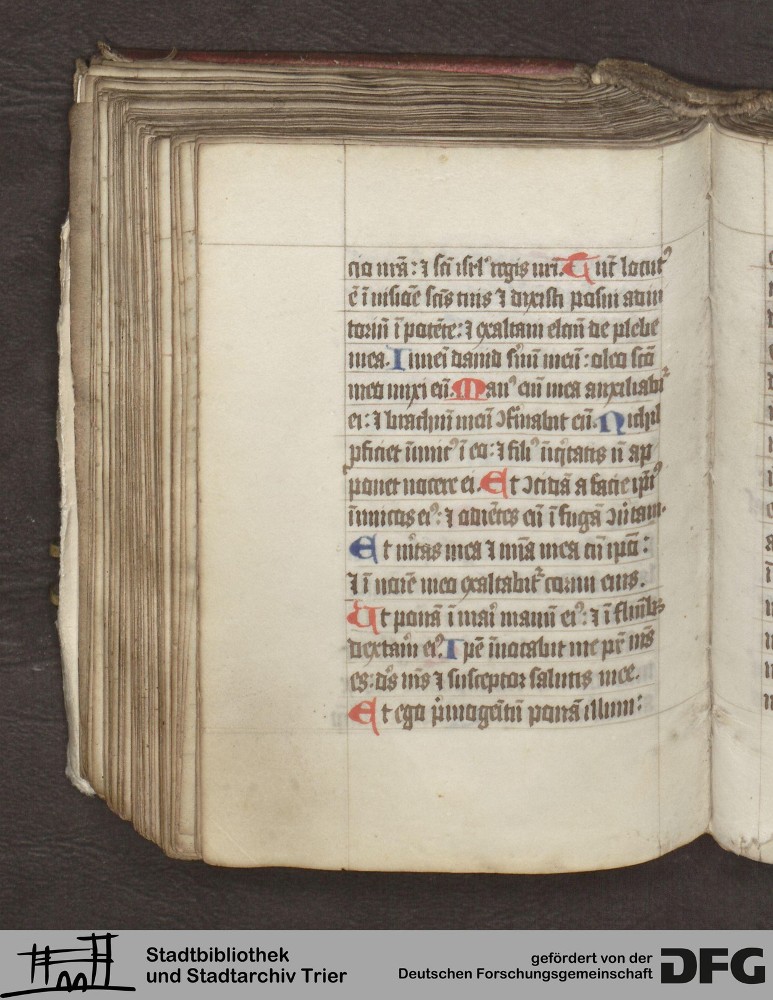 cio nrā: ⁊ scī isrl' regis nri. Tūc locut⁹
ē ī visiōe scīs tuis ⁊ dixisti posui adiu
toriū ī potēte: ⁊ exaltaui elcūm de plebe
mea. Inueī dauid s'uū meū: oleo scō
meo unxi eū. Man⁹ eiū mea auxiliabit'
ei: ⁊ brachiū meū ɔfirmabit eū. Nichil
pficiet inimic⁹ ī eo: ⁊ fili⁹ iniqtatis nō ap
ponet nocere ei. Et ɔcidā a facie ipi⁹
inimicos ei⁹: ⁊ odiētes eū ī fugā ɔūtam.
Et uītas mea ⁊ mīa mea cū ipō:
⁊ ī noīe meo exaltabit' cornu eius.
Et ponā ī mari manū ei⁹: ⁊ ī flumīb3
dextam ei⁹. Ipē inuocabit me pr̄ mīs
es: ds ms ⁊ susceptor salutis mee.
Et ego p̄mogēitū ponā illum:
Stadtbibliothek
und Stadtarchiv Trier
gefördert von der
Deutschen Forschungsgemeinschaft DFG